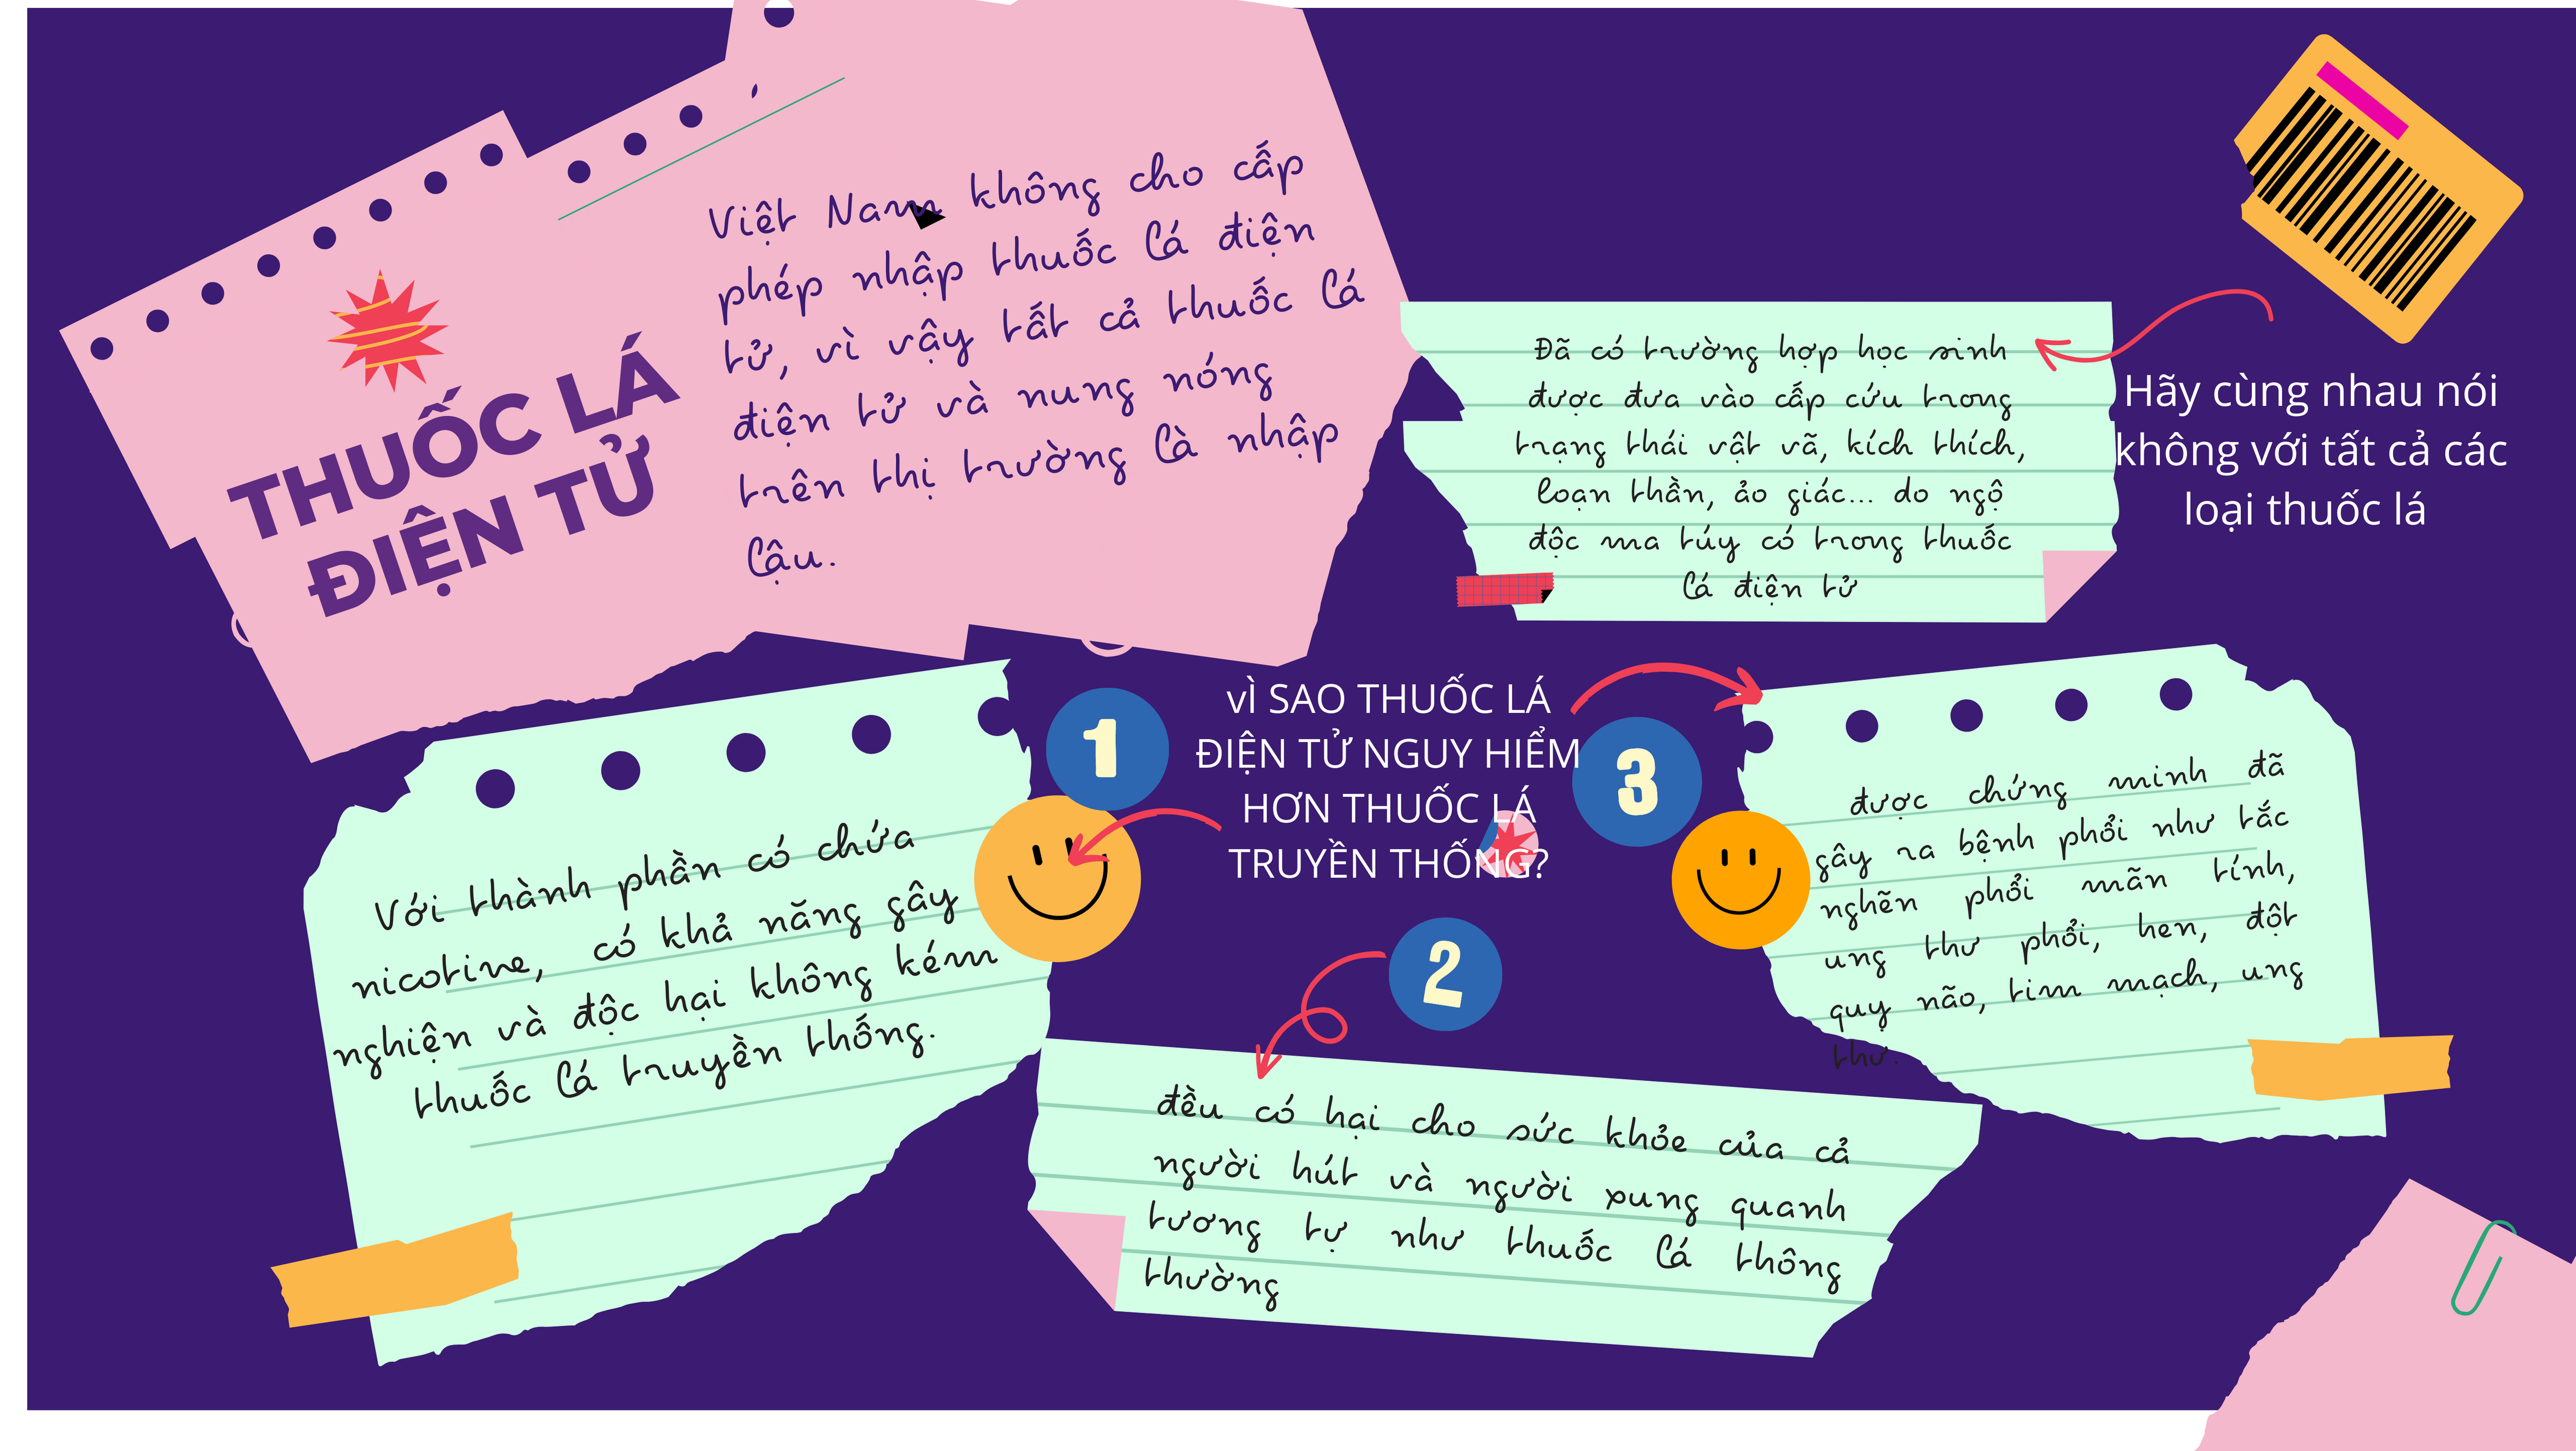 THUỐC LÁ
ĐIỆN TỬ
Việt Nam không cho cấp
phép nhập thuốc lá điện
tử, vì vậy tất cả thuốc lá
điện tử và nung nóng
trên thị trường là nhập
lậu.
Đã có trường hợp học sinh
được đưa vào cấp cứu trong
trạng thái vật vã, kích thích,
loạn thần, ảo giác... do ngộ
độc ma túy có trong thuốc
lá điện tử
Hãy cùng nhau nói
không với tất cả các
loại thuốc lá
vÌ SAO THUỐC LÁ
ĐIỆN TỬ NGUY HIỂM
HƠN THUỐC LÁ
TRUYỀN THỐNG?
1
Với thành phần có chứa
nicotine, có khả năng gây
nghiện và độc hại không kém
thuốc lá truyền thống.
2
đều có hại cho sức khỏe của cả
người hút và người xung quanh
tương tự như thuốc lá thông
thường
3
được chứng minh đã
gây ra bệnh phổi như tắc
nghẽn phổi mãn tính,
ung thư phổi, hen, đột
quỵ não, tim mạch, ung
thư.